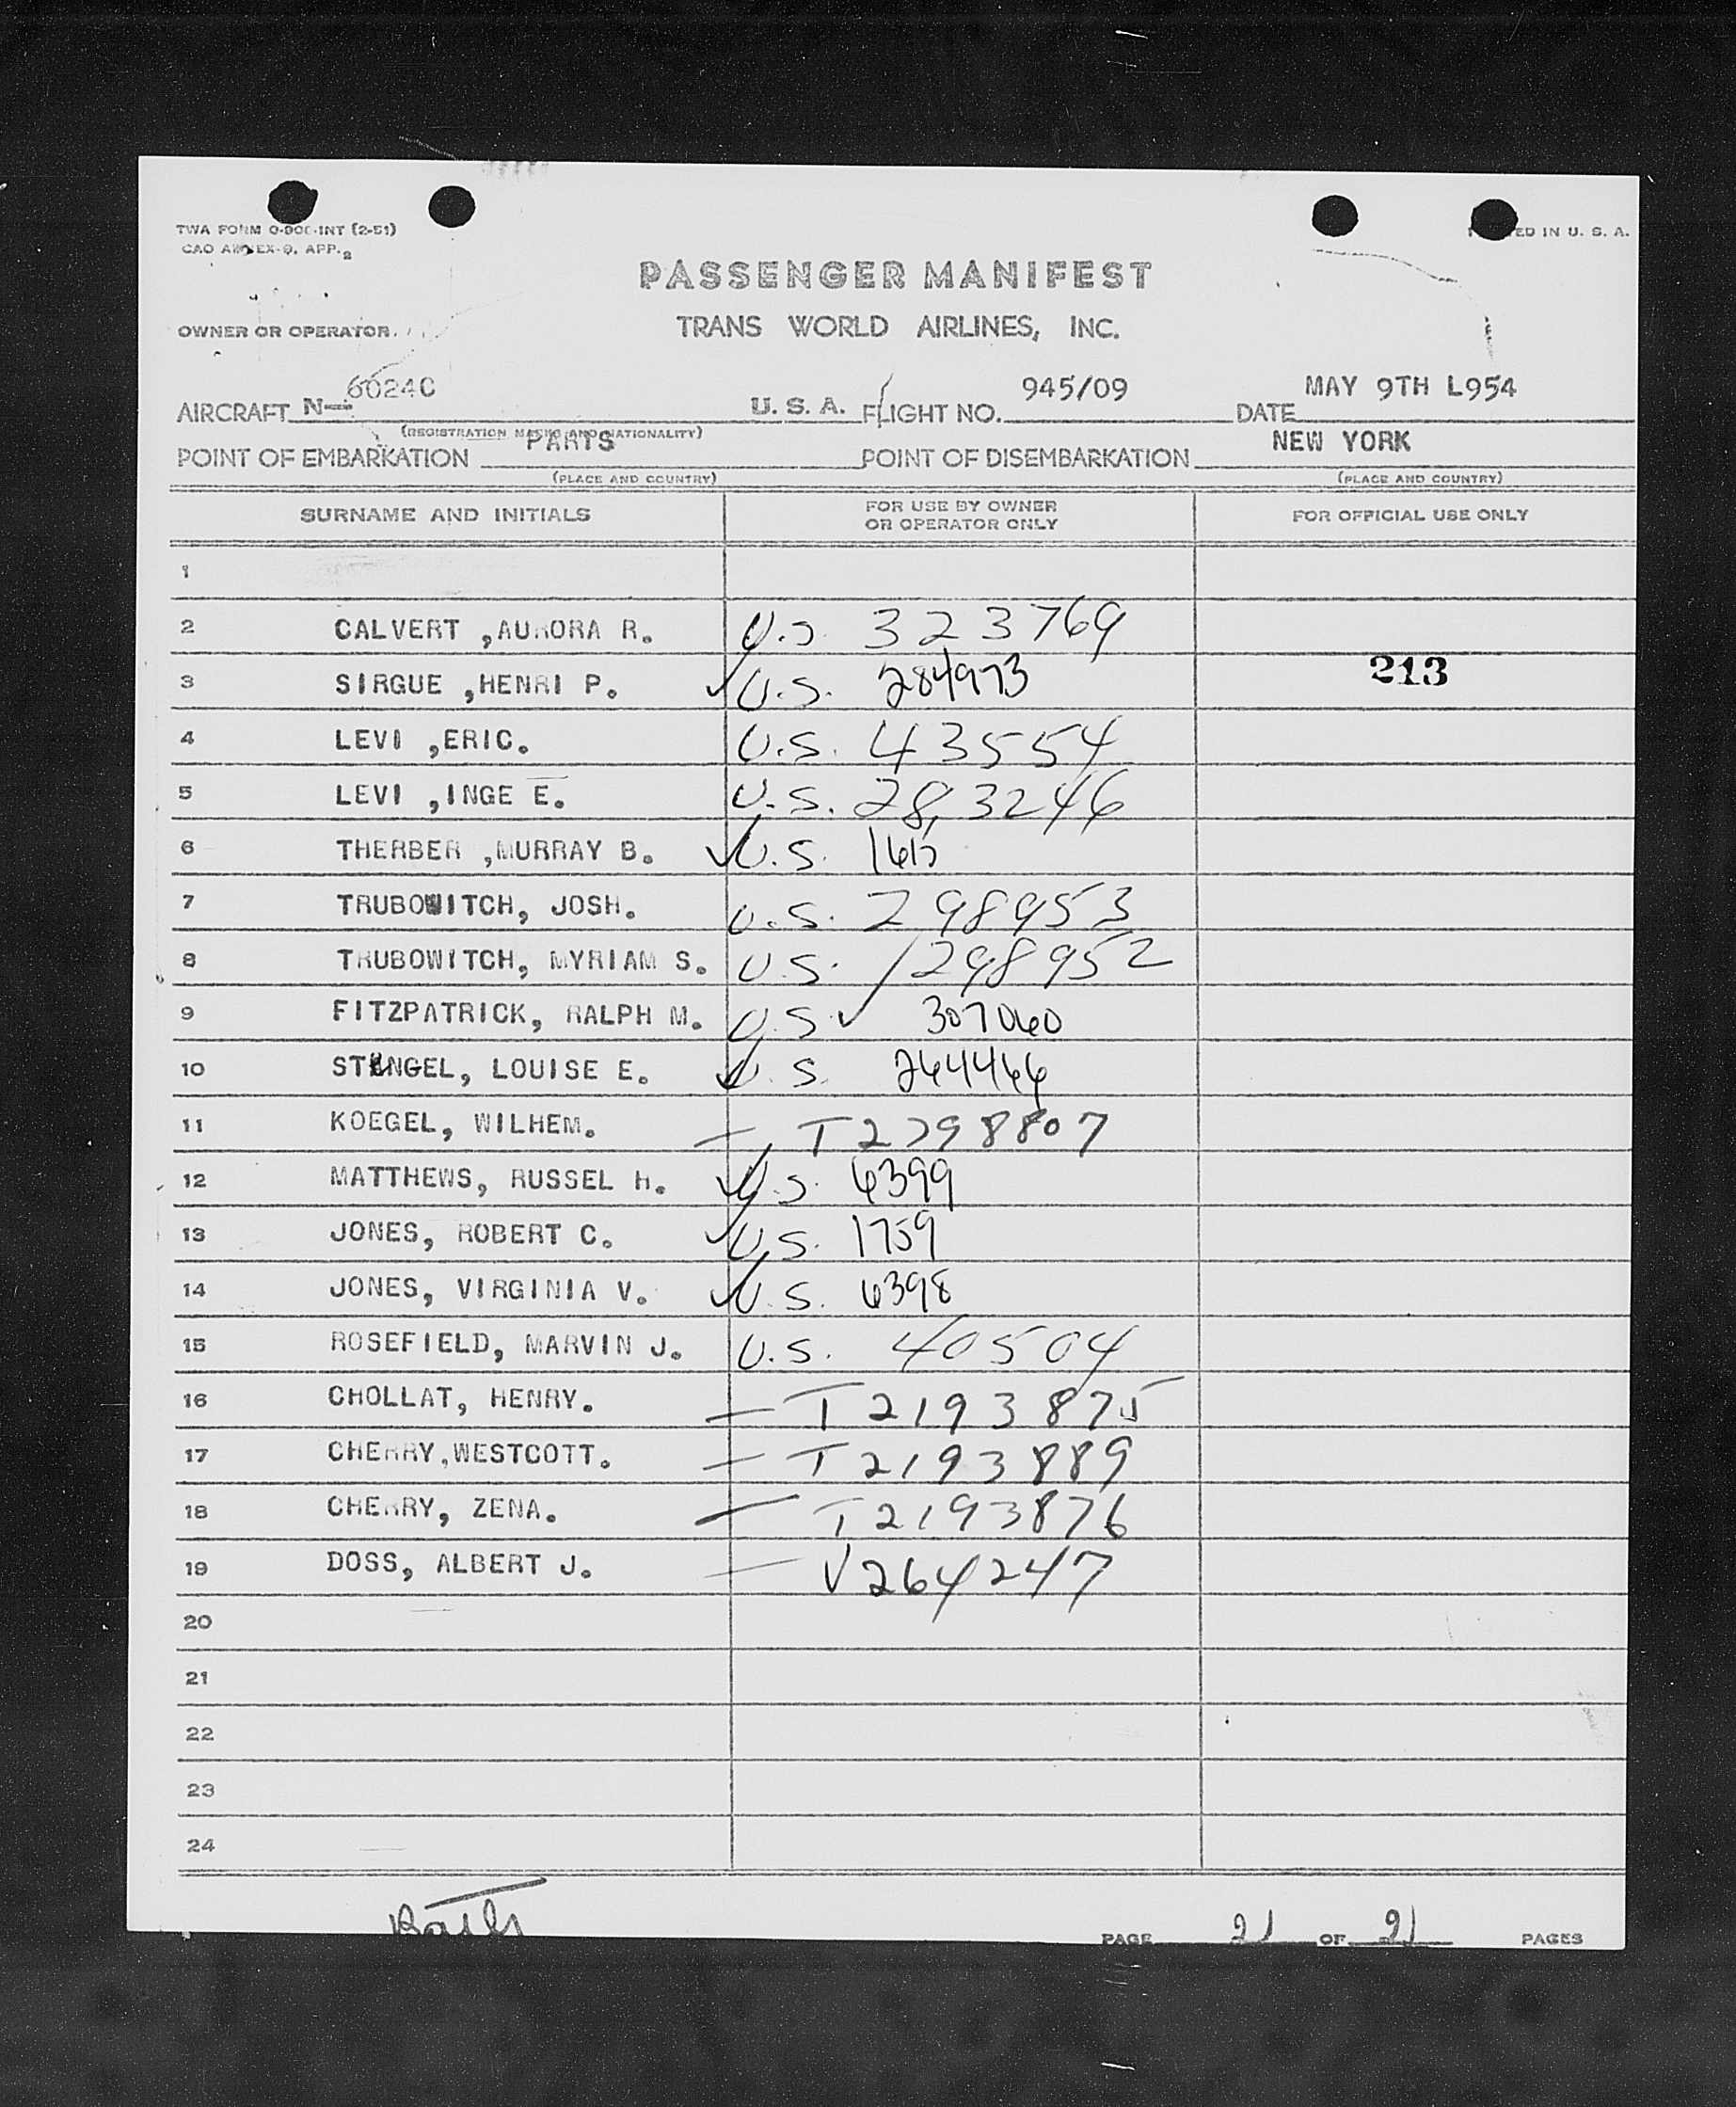 TWA FORM O-900-INT (2-51)
CAO ANNEX-9, APP. 2
PRINTED IN U. S. A.
PASSENGER MANIFEST
OWNER OR OPERATOR
TRANS WORLD AIRLINES, INC.
AIRCRAFT N- 6024C U. S. A. FLIGHT NO. 945/09 DATE MAY 9TH L954
(REGISTRATION MARKS AND NATIONALITY)
POINT OF EMBARKATION PARIS POINT OF DISEMBARKATION NEW YORK
(PLACE AND COUNTRY) (PLACE AND COUNTRY)
SURNAME AND INITIALS FOR USE BY OWNER OR OPERATOR ONLY FOR OFFICIAL USE ONLY
1
2 CALVERT ,AURORA R. U.S. 323769
3 SIRGUE ,HENRI P. U.S. 284973 213
4 LEVI ,ERIC. U.S. 43554
5 LEVI ,INGE E. U.S. 283246
6 THERBER ,MURRAY B. U.S.
7 TRUBOWITCH, JOSH. U.S. 298953
8 TRUBOWITCH, MYRIAM S. U.S. 298952
9 FITZPATRICK, RALPH M. U.S. 307060
10 STENGEL, LOUISE E. U.S. 264466
11 KOEGEL, WILHEM. T2798807
12 MATTHEWS, RUSSEL H. U.S. 6399
13 JONES, ROBERT C. U.S. 1759
14 JONES, VIRGINIA V. U.S. 6398
15 ROSEFIELD, MARVIN J. U.S. 40504
16 CHOLLAT, HENRY. T2193875
17 CHERRY,WESTCOTT. T2193889
18 CHERRY, ZENA. T2193876
19 DOSS, ALBERT J. V264247
20
21
22
23
24
PAGE 21 OF 21 PAGES